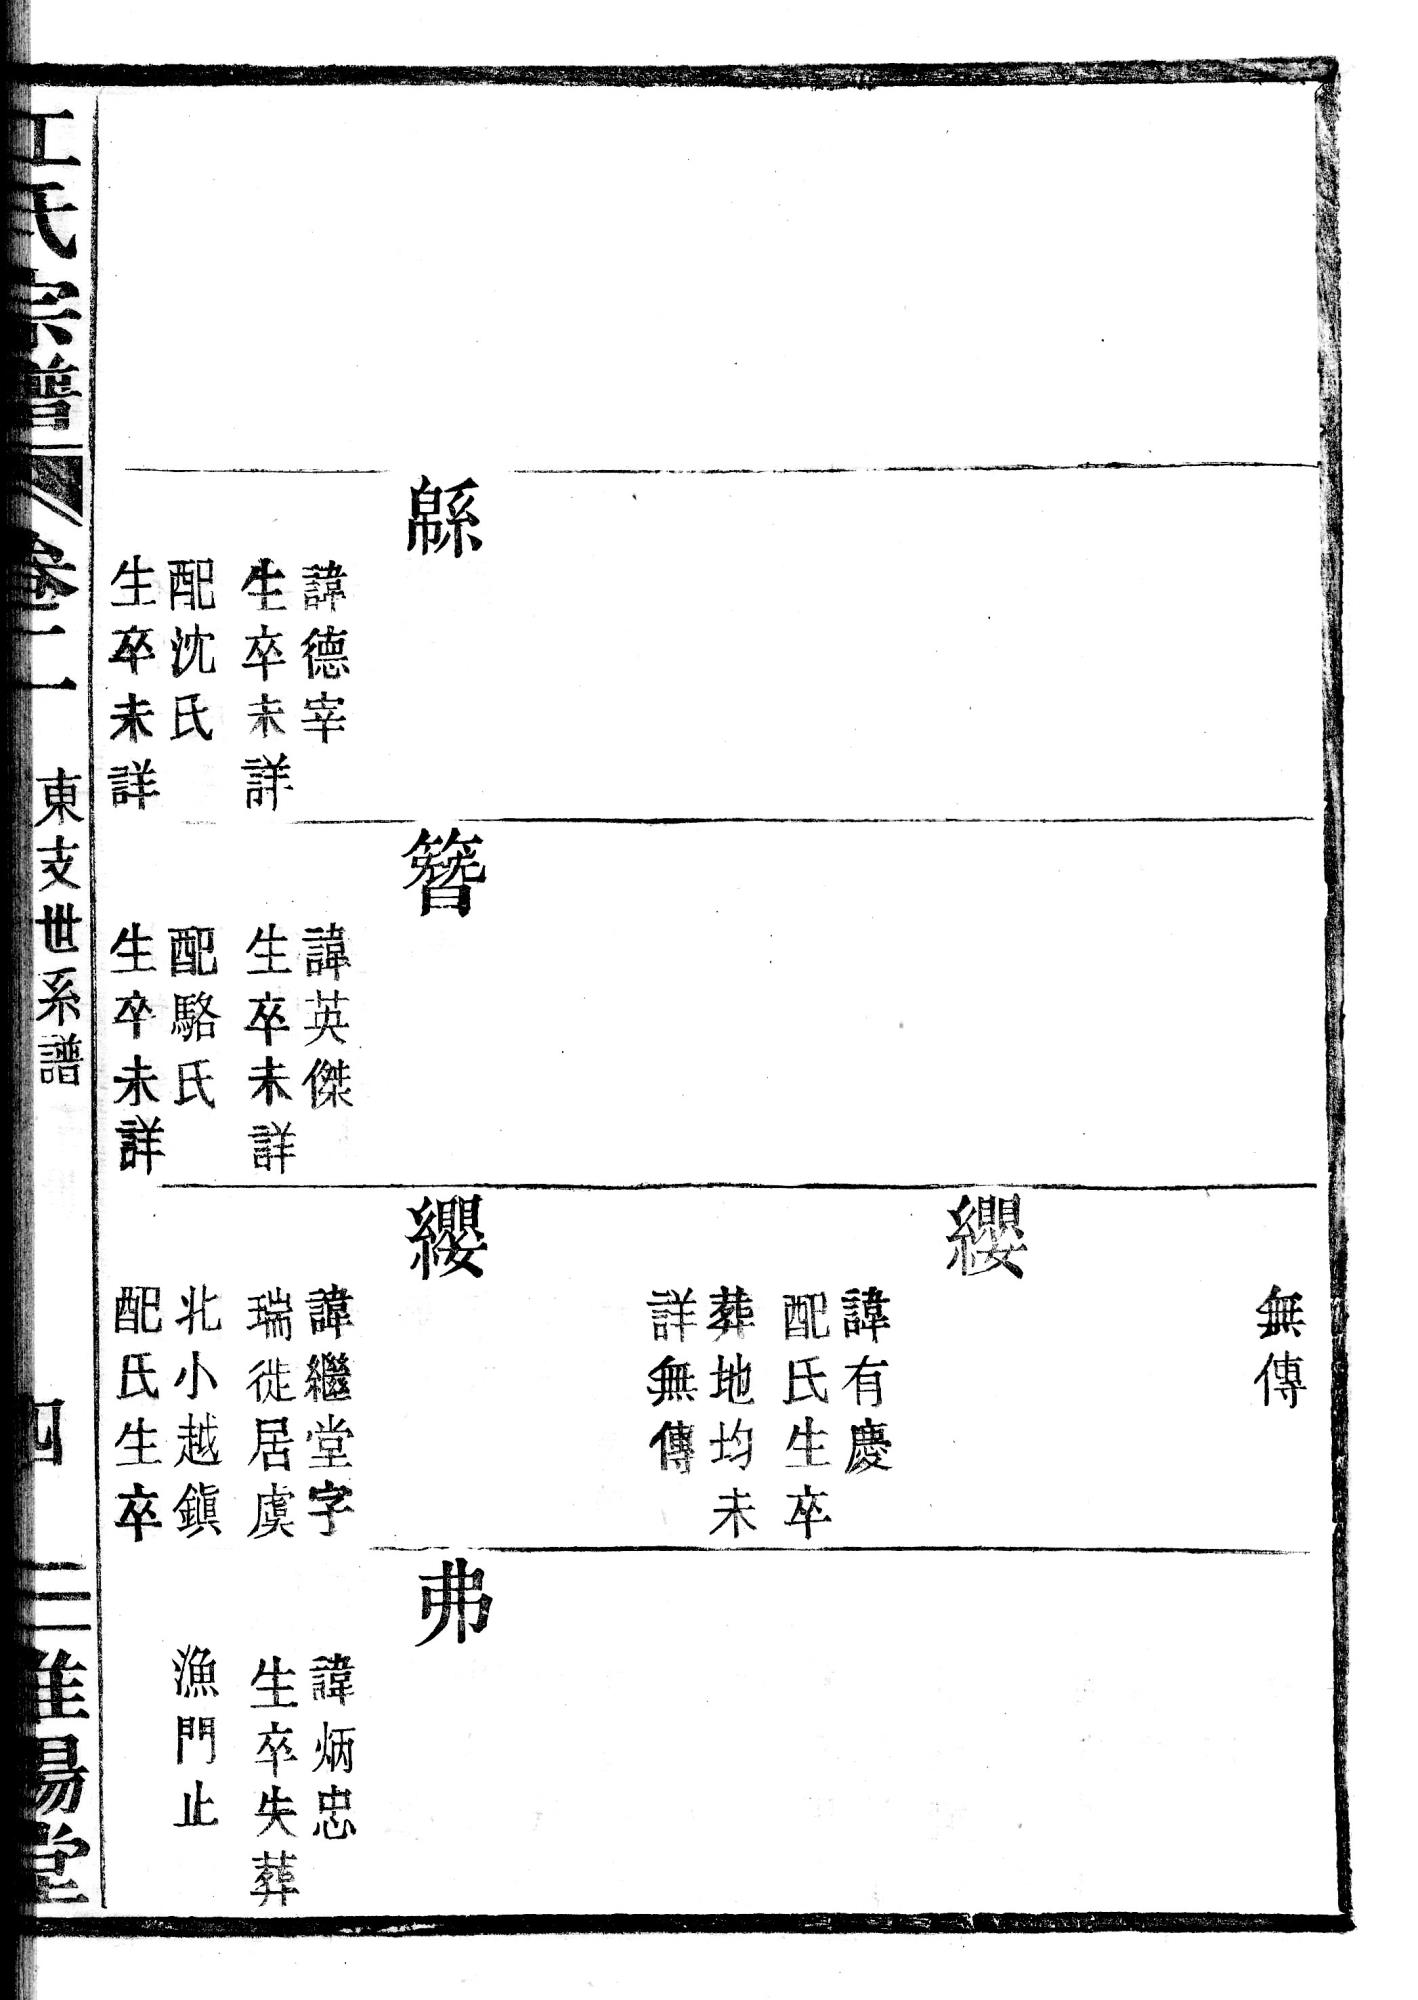 緜
諱德宰
生卒未詳
配沈氏
生卒未詳
簪
諱英傑
生卒未詳
配駱氏
生卒未詳
無傳
纓
諱有慶
配氏生卒
葬地均未
詳無傳
纓
諱繼堂字
瑞徙居虞
北小越鎭
配氏生卒
弗
諱炳忠
生卒失葬
漁門止
江氏宗譜
卷二
東支世系譜
四
陽堂